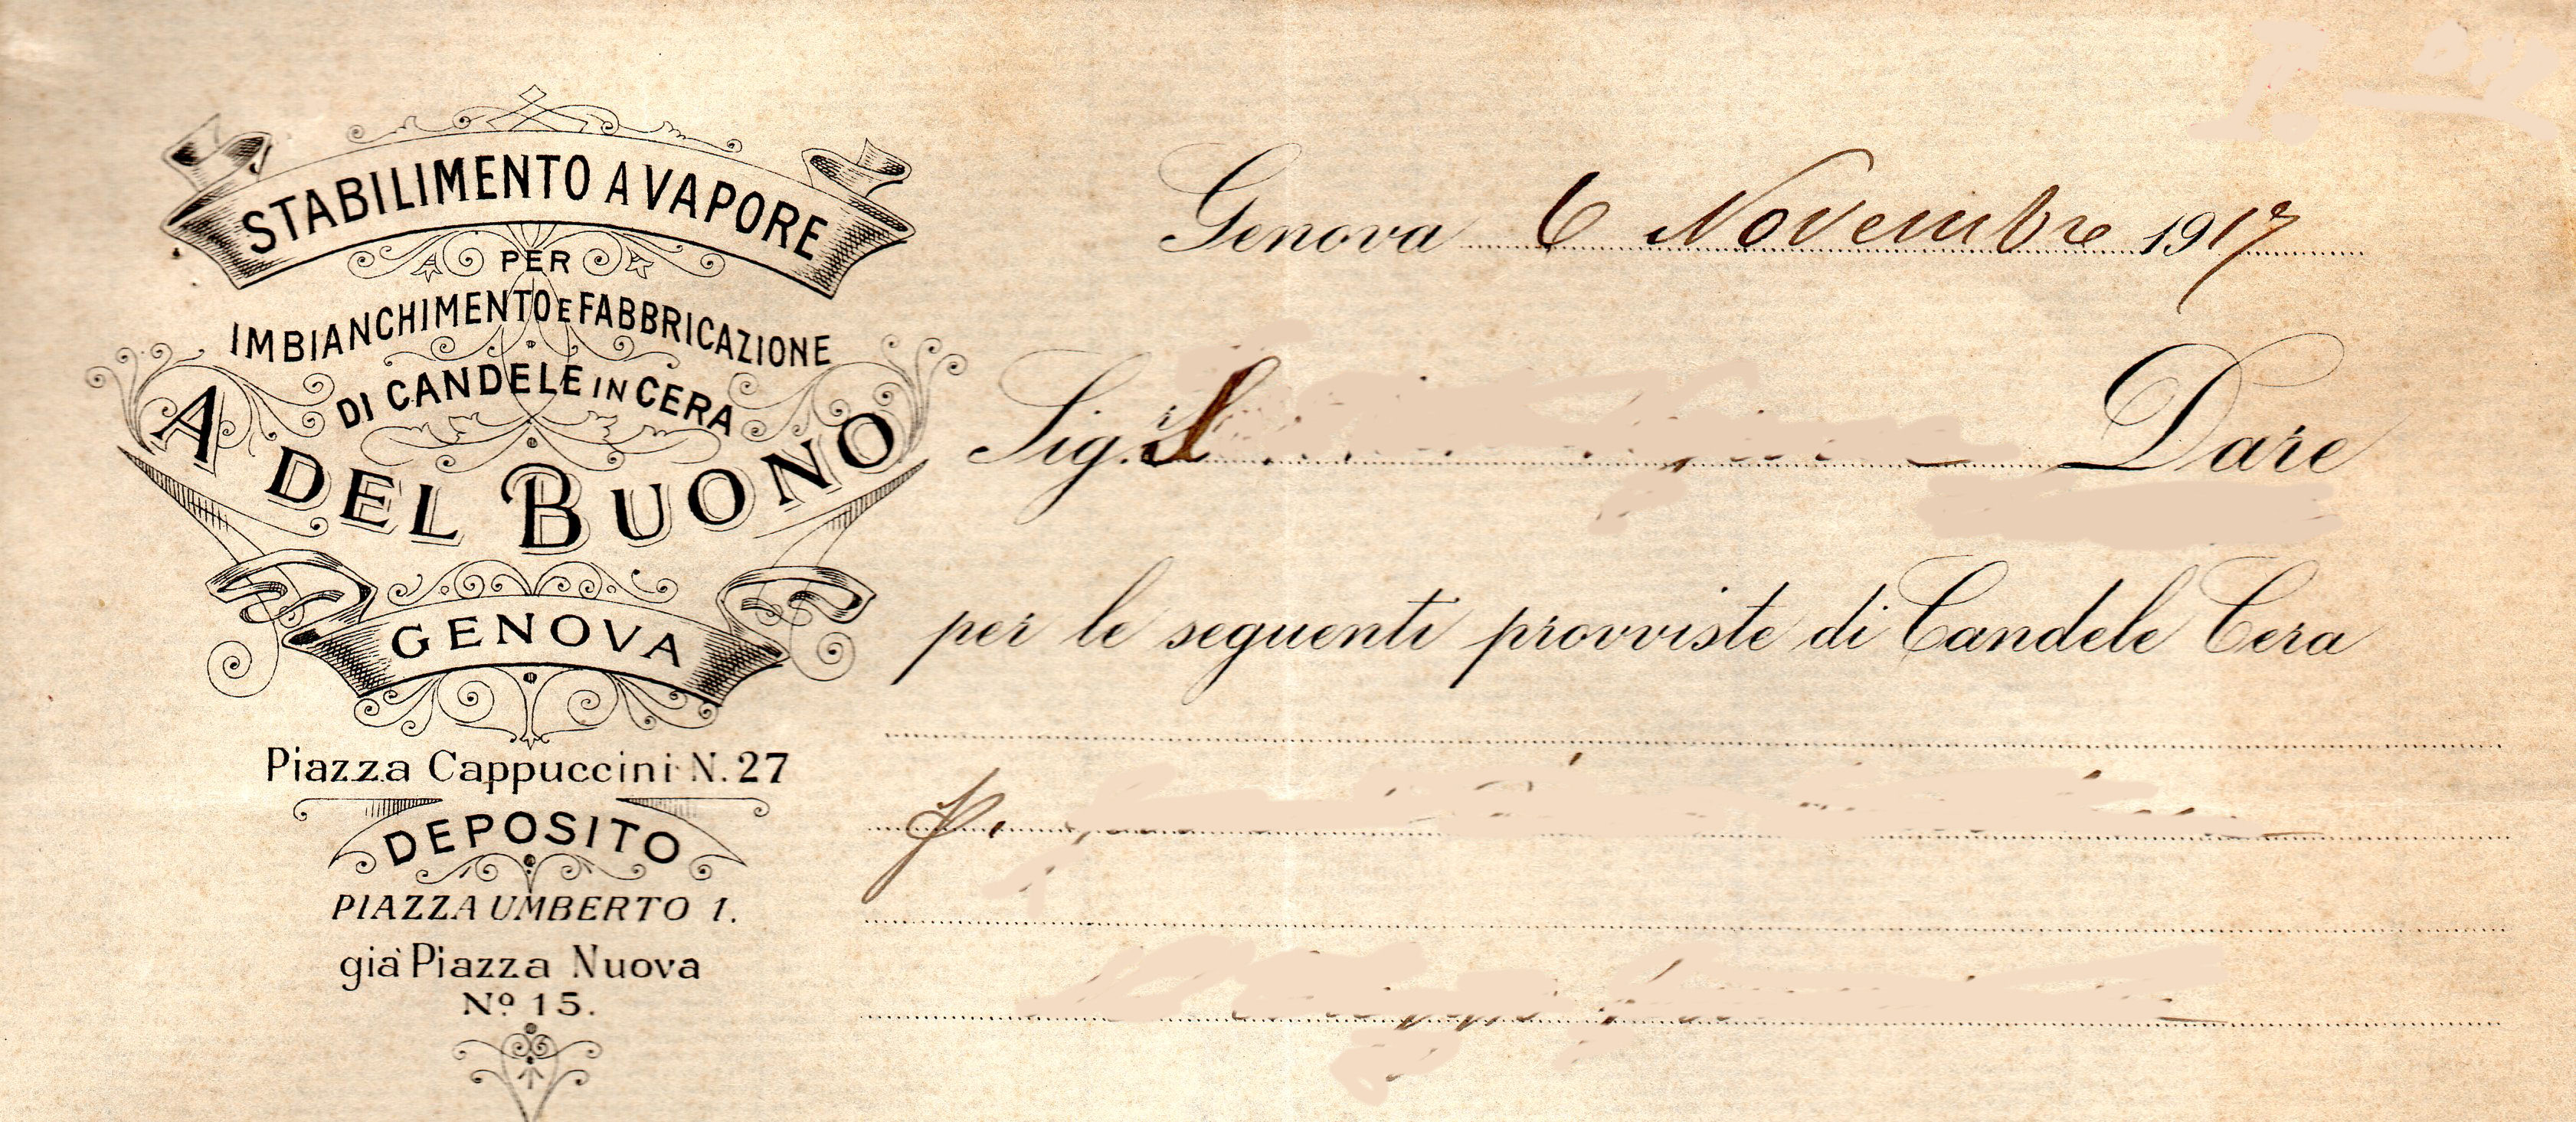 STABILIMENTO A VAPORE
PER
IMBIANCHIMENTO E FABBRICAZIONE
DI CANDELE IN CERA
A DEL BUONO
GENOVA
Piazza Cappuccini N. 27
DEPOSITO
PIAZZA UMBERTO 1.
già Piazza Nuova
Nº 15.
Genova 6 Novembre 1917
Sig.r Dare
per le seguenti provviste di Candele Cera